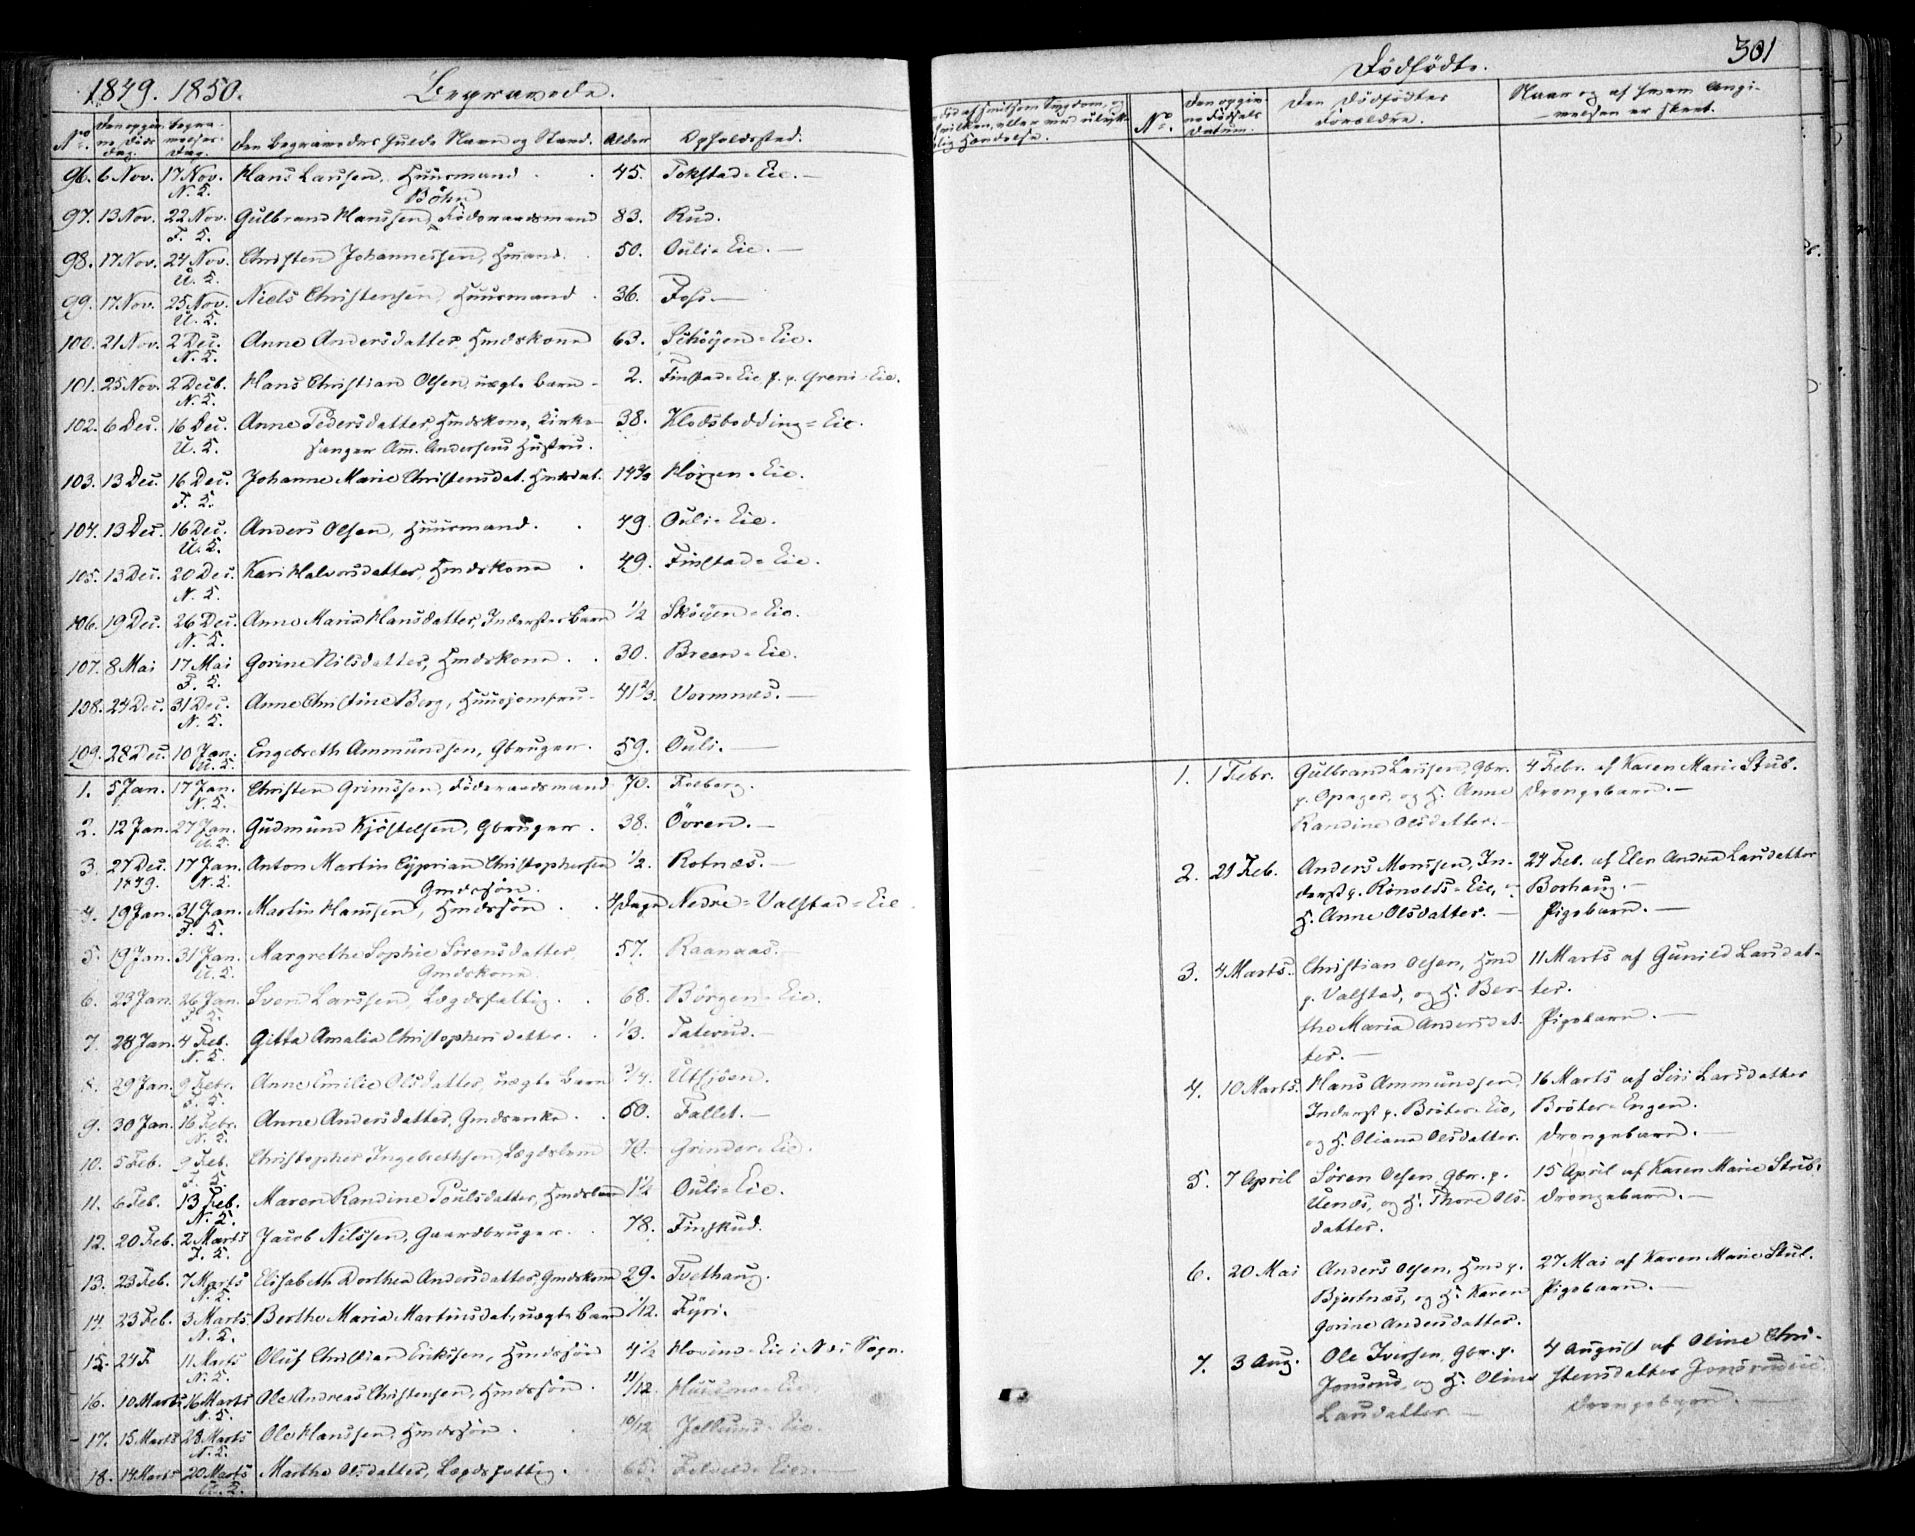 1849. 1850. Begravede.
No. Den opgivne Døds Dag. Begravelses Dag. Den Begravedes fulde Navn og Stand. Alder Opholdssted.
96. 6 Nov. 17 Nov. Hans Larssen, Huusmand 45. Tokstad-Eie.
N. K.
Böhn
97. 13 Nov. 22 Nov. Gulbrand Hanssen, Föderaadsmand 83. Rud.
F. K.
98. 17 Nov. 24 Nov. Christen Johannessen, Hmand. 50. Ouli-Eie.
U. K.
99. 17 Nov. 25 Nov. Niels Christensen, Huusmand 36. Foss.
U. K.
100. 21 Nov. 2 Dec. Anne Andersdatter, Hmdskone 63. Schöyen-Eie.
N. K.
101. 25 Nov. 2 Decb. Hans Christian Olsen, uægte Barn 2. Finstad-Eie f. p. Greni-Eie.
N. K.
102. 6 Dec. 16 Dec. Anne Pedersdatter, Hmdskone, Kirke- 38. Klodsbodding-Eie.
U. K. sanger Am. Andersens Hustru.
103. 13 Dec. 16 Dec. Johanne Marie Christensdat. Hmdsdat. 14 Hörgen-Eie.
F. K.
104. 13 Dec. 16 Dec. Anders Olsen, Huusmand. 49. Ouli-Eie.
U. K.
105. 13 Dec. 20 Dec. Kari Halvorsdatter, Hmdskone 49. Finstad-Eie.
N. K.
106. 19 Dec. 26 Dec. Anne Maria Hansdatter, Inderstes Barn 1/2 Sköyen-Eie.
N. K.
107. 8 Mai 17 Mai Gorine Nilsdatter, Hmdskone. 30. Breen-Eie.
F. K.
108. 24 Dec. 31 Dec. Anne Christine Berg, Huusjomfru 41 2/3. Vormnæs.
N. K.
109. 28 Dec. 10 Jan. Engebreth Ammundsen, Gbruger. 59. Ouli.
U. K.
1. 5 Jan. 17 Jan. Christen Grimssen, Föderaadsmand 70. Festerg.
N. K.
2. 12 Jan. 27 Jan. Gudmund Kjöstelsen, Gbruger. 38. Ovren.
U. K.
3. 27 Dec. 17 Jan. Anton Martin Cyprian Christophersen 1/2. Rotnæs.
1849. N. K. Gmdssön.
4. 19 Jan. 31 Jan. Martin Hanssen, Hmdssön 4 Dage Nedre-Valstad-Eie
F. K.
5. 19 Jan. 31 Jan. Margrethe Sophie Sörensdatter, 57. Raanaas.
U. K. Gmdskone
6. 23 Jan. 26 Jan. Sven Larssen, Lægdsfattig. 68. Börgen-Eie.
F. K.
7. 28 Jan. 4 Feb. Gitta Amalia Christophersdatter. 1/3. Taterud.
N. K.
8. 29 Jan. 9 Febr. Anne Emilie Olsdatter, uægte Barn 3/4. Utsjöen.
F. K.
9. 30 Jan. 16 Febr. Anne Andersdatter, Gmdsenke. 60. Fallet.
N. K.
10. 5 Feb. 9 Feb. Christopher Ingebrethsen, Lægdslem 70. Grinder-Eie.
F. K.
11. 6 Feb. 13 Feb. Maren Randine Poulsdatter, Hmdsbarn 1 1/2 Ouli-Eie.
N. K.
12. 20 Feb. 2 Marts Jacob Nilssen, Gaardbruger. 78. Finskud.
F. K.
13. 23 Feb. 7 Marts Elisabeth Dorthea Andersdatter, Gmdskone 29. Tvethaug.
N. K.
14. 23 Feb. 3 Marts. Berthe Maria Martinsdat, uægte Barn 1/12. Fyri.
N. K.
15. 24 F. 11 Marts Oluf Christian Erikssen, Hmdssön 4 1/2 Hovind-Eie i Næs Sogn.
N. K.
16. 10 Marts 16 Marts Ole Andreas Christensen, Hmdssön. 11/12. Eie
N. K.
17. 15 Marts 28 Marts Ole Hanssen, Hmdssön. 10/12 Eie.
N. K.
18. 14 Marts 20 Marts Marthe Olsdatter, Lægdsfattig. 65. Eie.
U. K.
Dödfödte. 301
No. Den opgivne Födsels Datum. Den Dödfödtes Forældre. Naar og af hvem Angi-
melsen er skeet.
1. 1 Febr. Gulbrand Larssen, Gbr. 4 Febr. af Karen Marie Stub.
p. Opager, og H. Anne Drengebarn.
Randine Olsdatter.
2. 21 Feb. Anders Monssen, In- 24 Feb. af Elen Andrea Larsdatter
derst p. Rönolds-Eie, og Borhaug.
H. Anne Olsdatter. Pigebarn.
3. 4 Marts. Christian Olsen, Hmd 11 Marts af Gunild Larsdat-
p. Valstad, og H. Ber- ter.
the Maria Andersdat- Pigebarn.
ter.
4. 10 Marts. Hans Ammundsen, 16 Marts af Siri Larsdatter
Inderst p. Bröter-Eie, Bröter-Engen.
og H. Oliane Olsdatter. Drengebarn.
5. 7 April Sören Olsen, Gbr. p. 15 April af Karen Marie Stub.
Uenæs, og H. Thore Ols- Drengebarn.
datter.
6. 20 Mai Anders Olsen, Hmd p. 27 Mai af Karen Marie Stub.
Bjertnæs, og H. Karen Pigebarn.
Gorine Andersdatter.
7. 3 Aug. Ole Iversen, Gbr. p. 4 August af Oline Chri-
Jonsrud, og H. Oline stensdatter Jonsrudeie
Larsdatter Drengebarn.